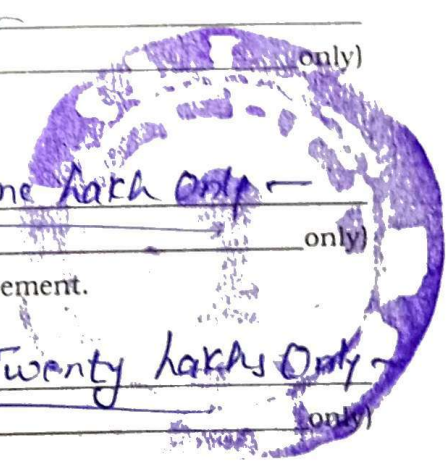 only)
ne Lakh Only –
only)
ement.
Twenty Lakhs Only –
only)